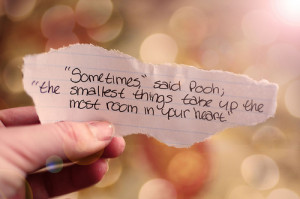 "Sometimes," said Pooh,
"the smallest things take up the
most room in your heart"